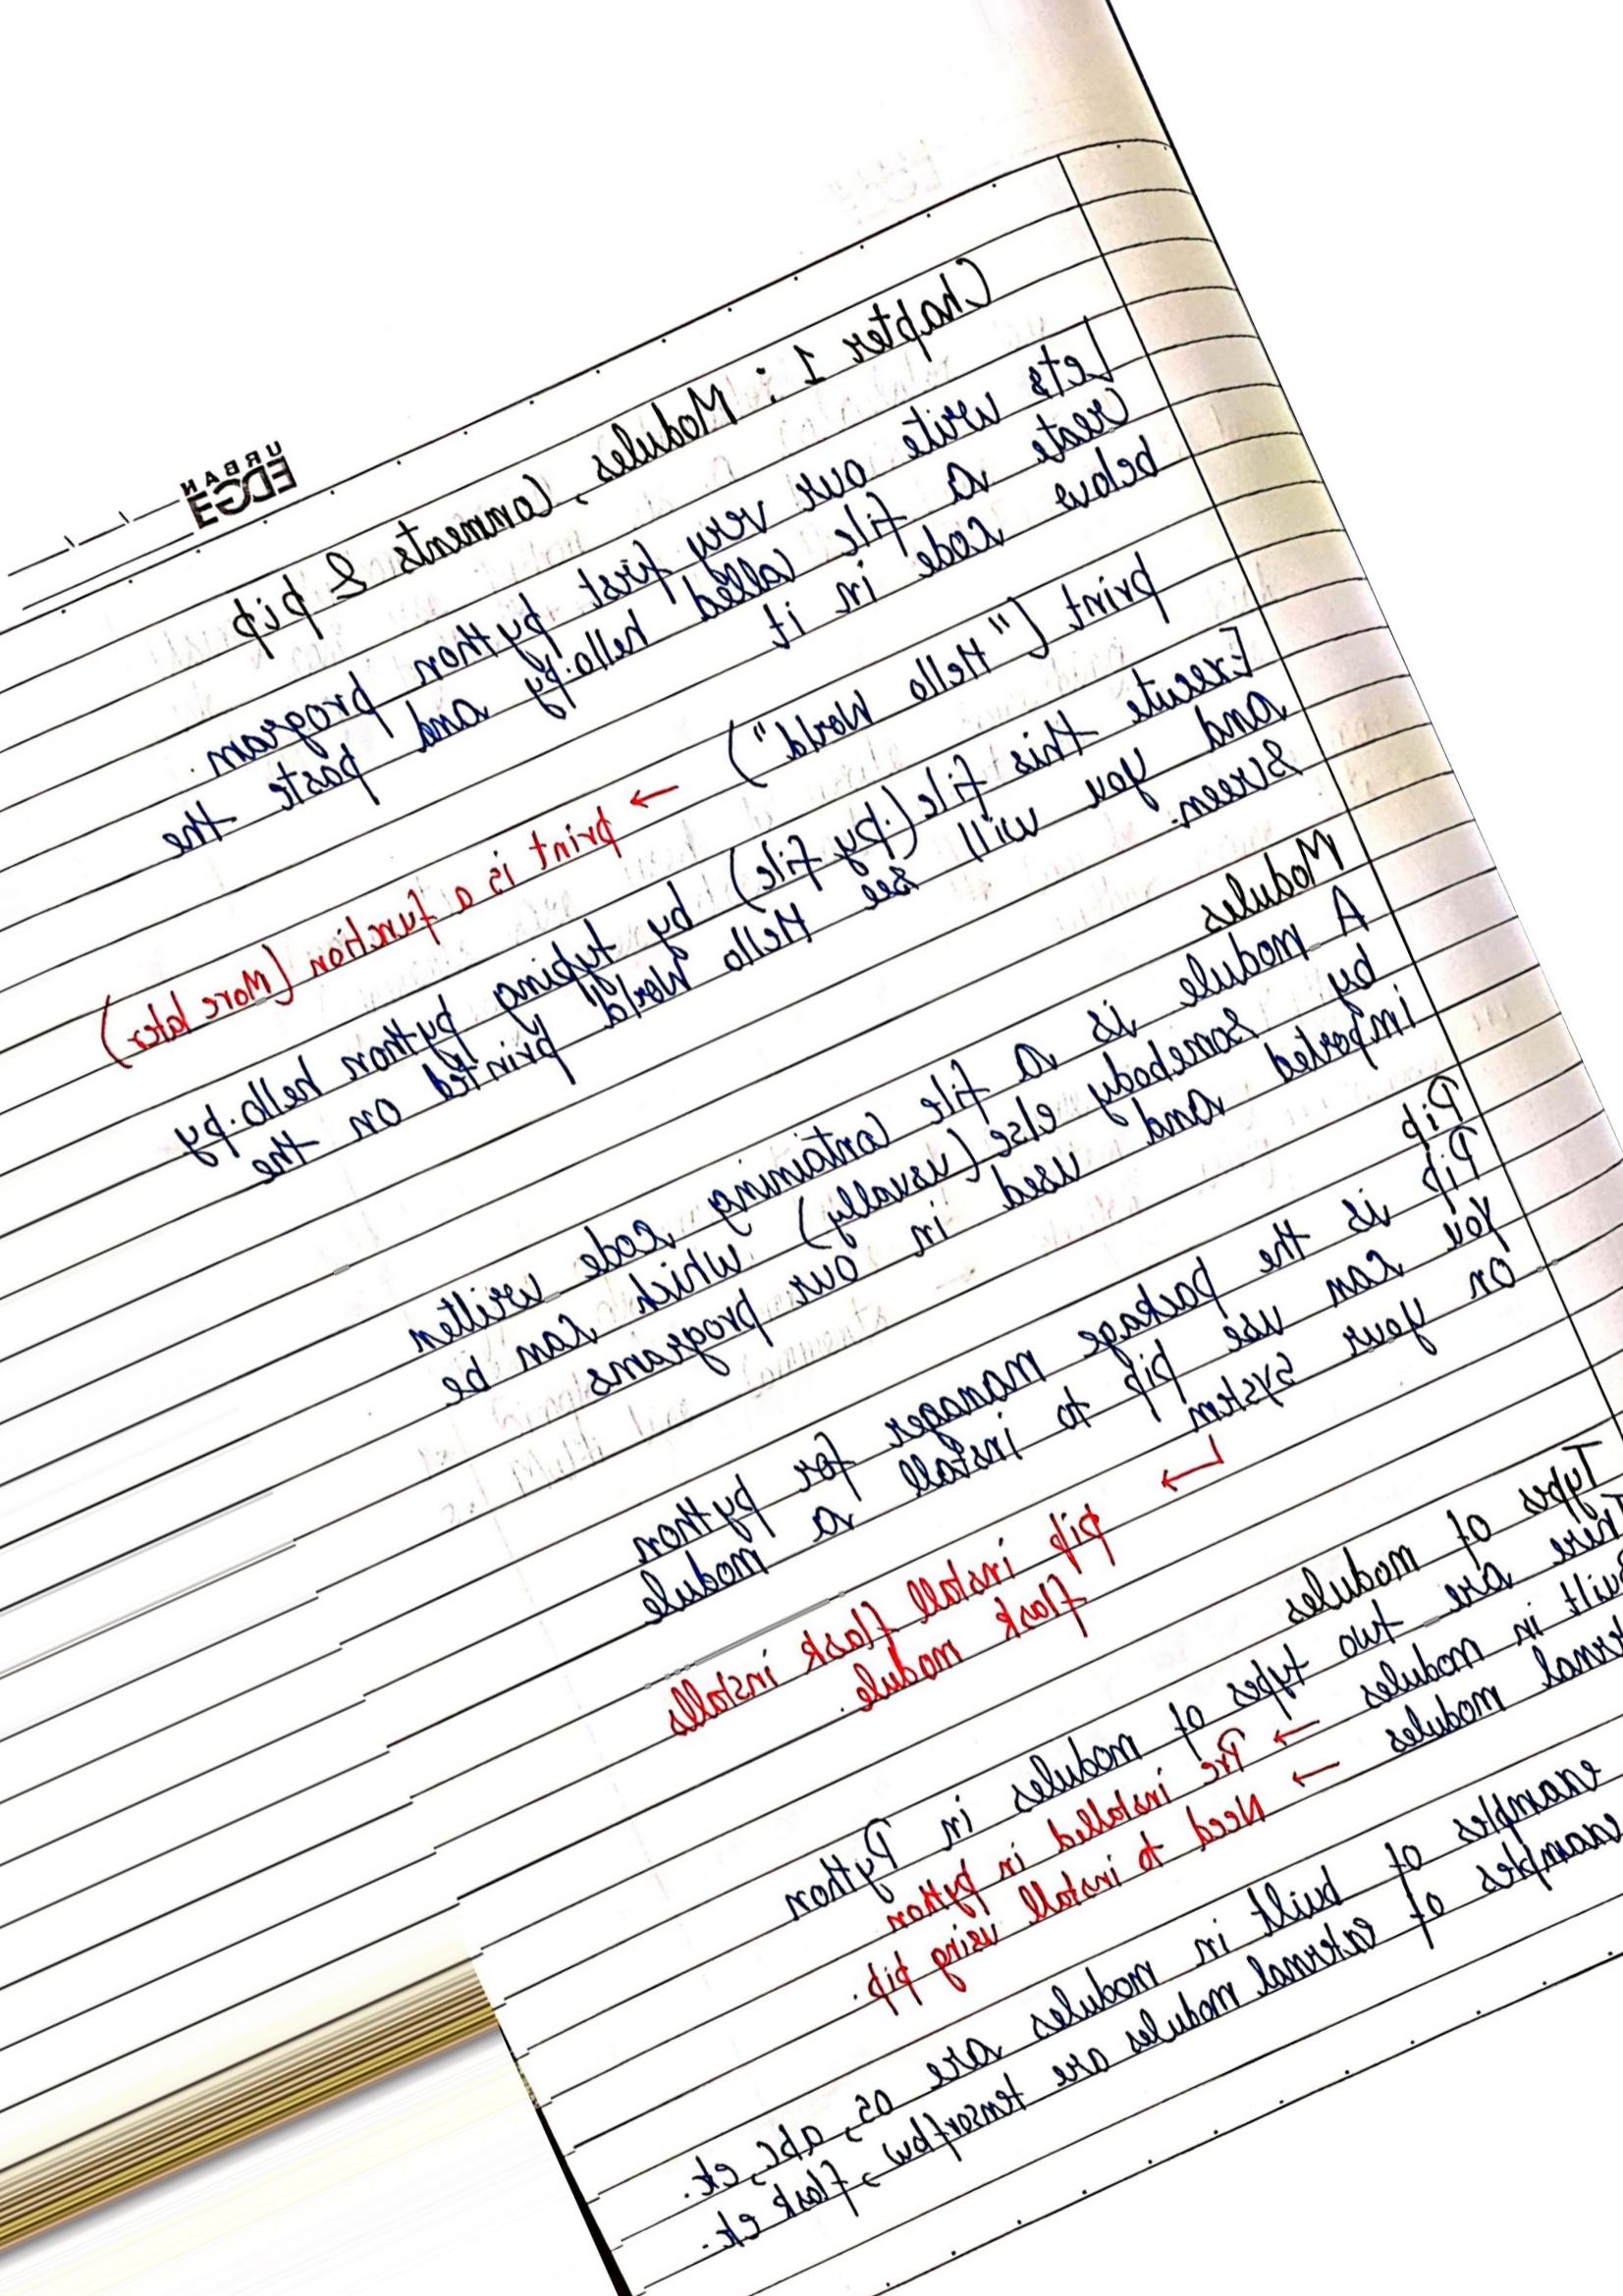 URBAN
EDGE
Chapter 1 : Modules, Comments & pip
Lets write our very first python program.
Create a file called hello.py and paste the
below code in it
print ("Hello World") → print is a function (More later)
Execute this file (.py file) by typing python hello.py
and you will see Hello World printed on the
Screen.
Modules
A module is a file containing code written
by somebody else (usually) which can be
imported and used in our programs
Pip
Pip is the package manager for python
You can use pip to install a module
on your system
↳ pip install flask installs
flask module.
Types of modules
There are two types of modules in Python
built in modules → Pre installed in python
ternal modules → Need to install using pip.
examples of built in modules are os, abc, etc.
examples of external modules are tensorflow, flask etc.